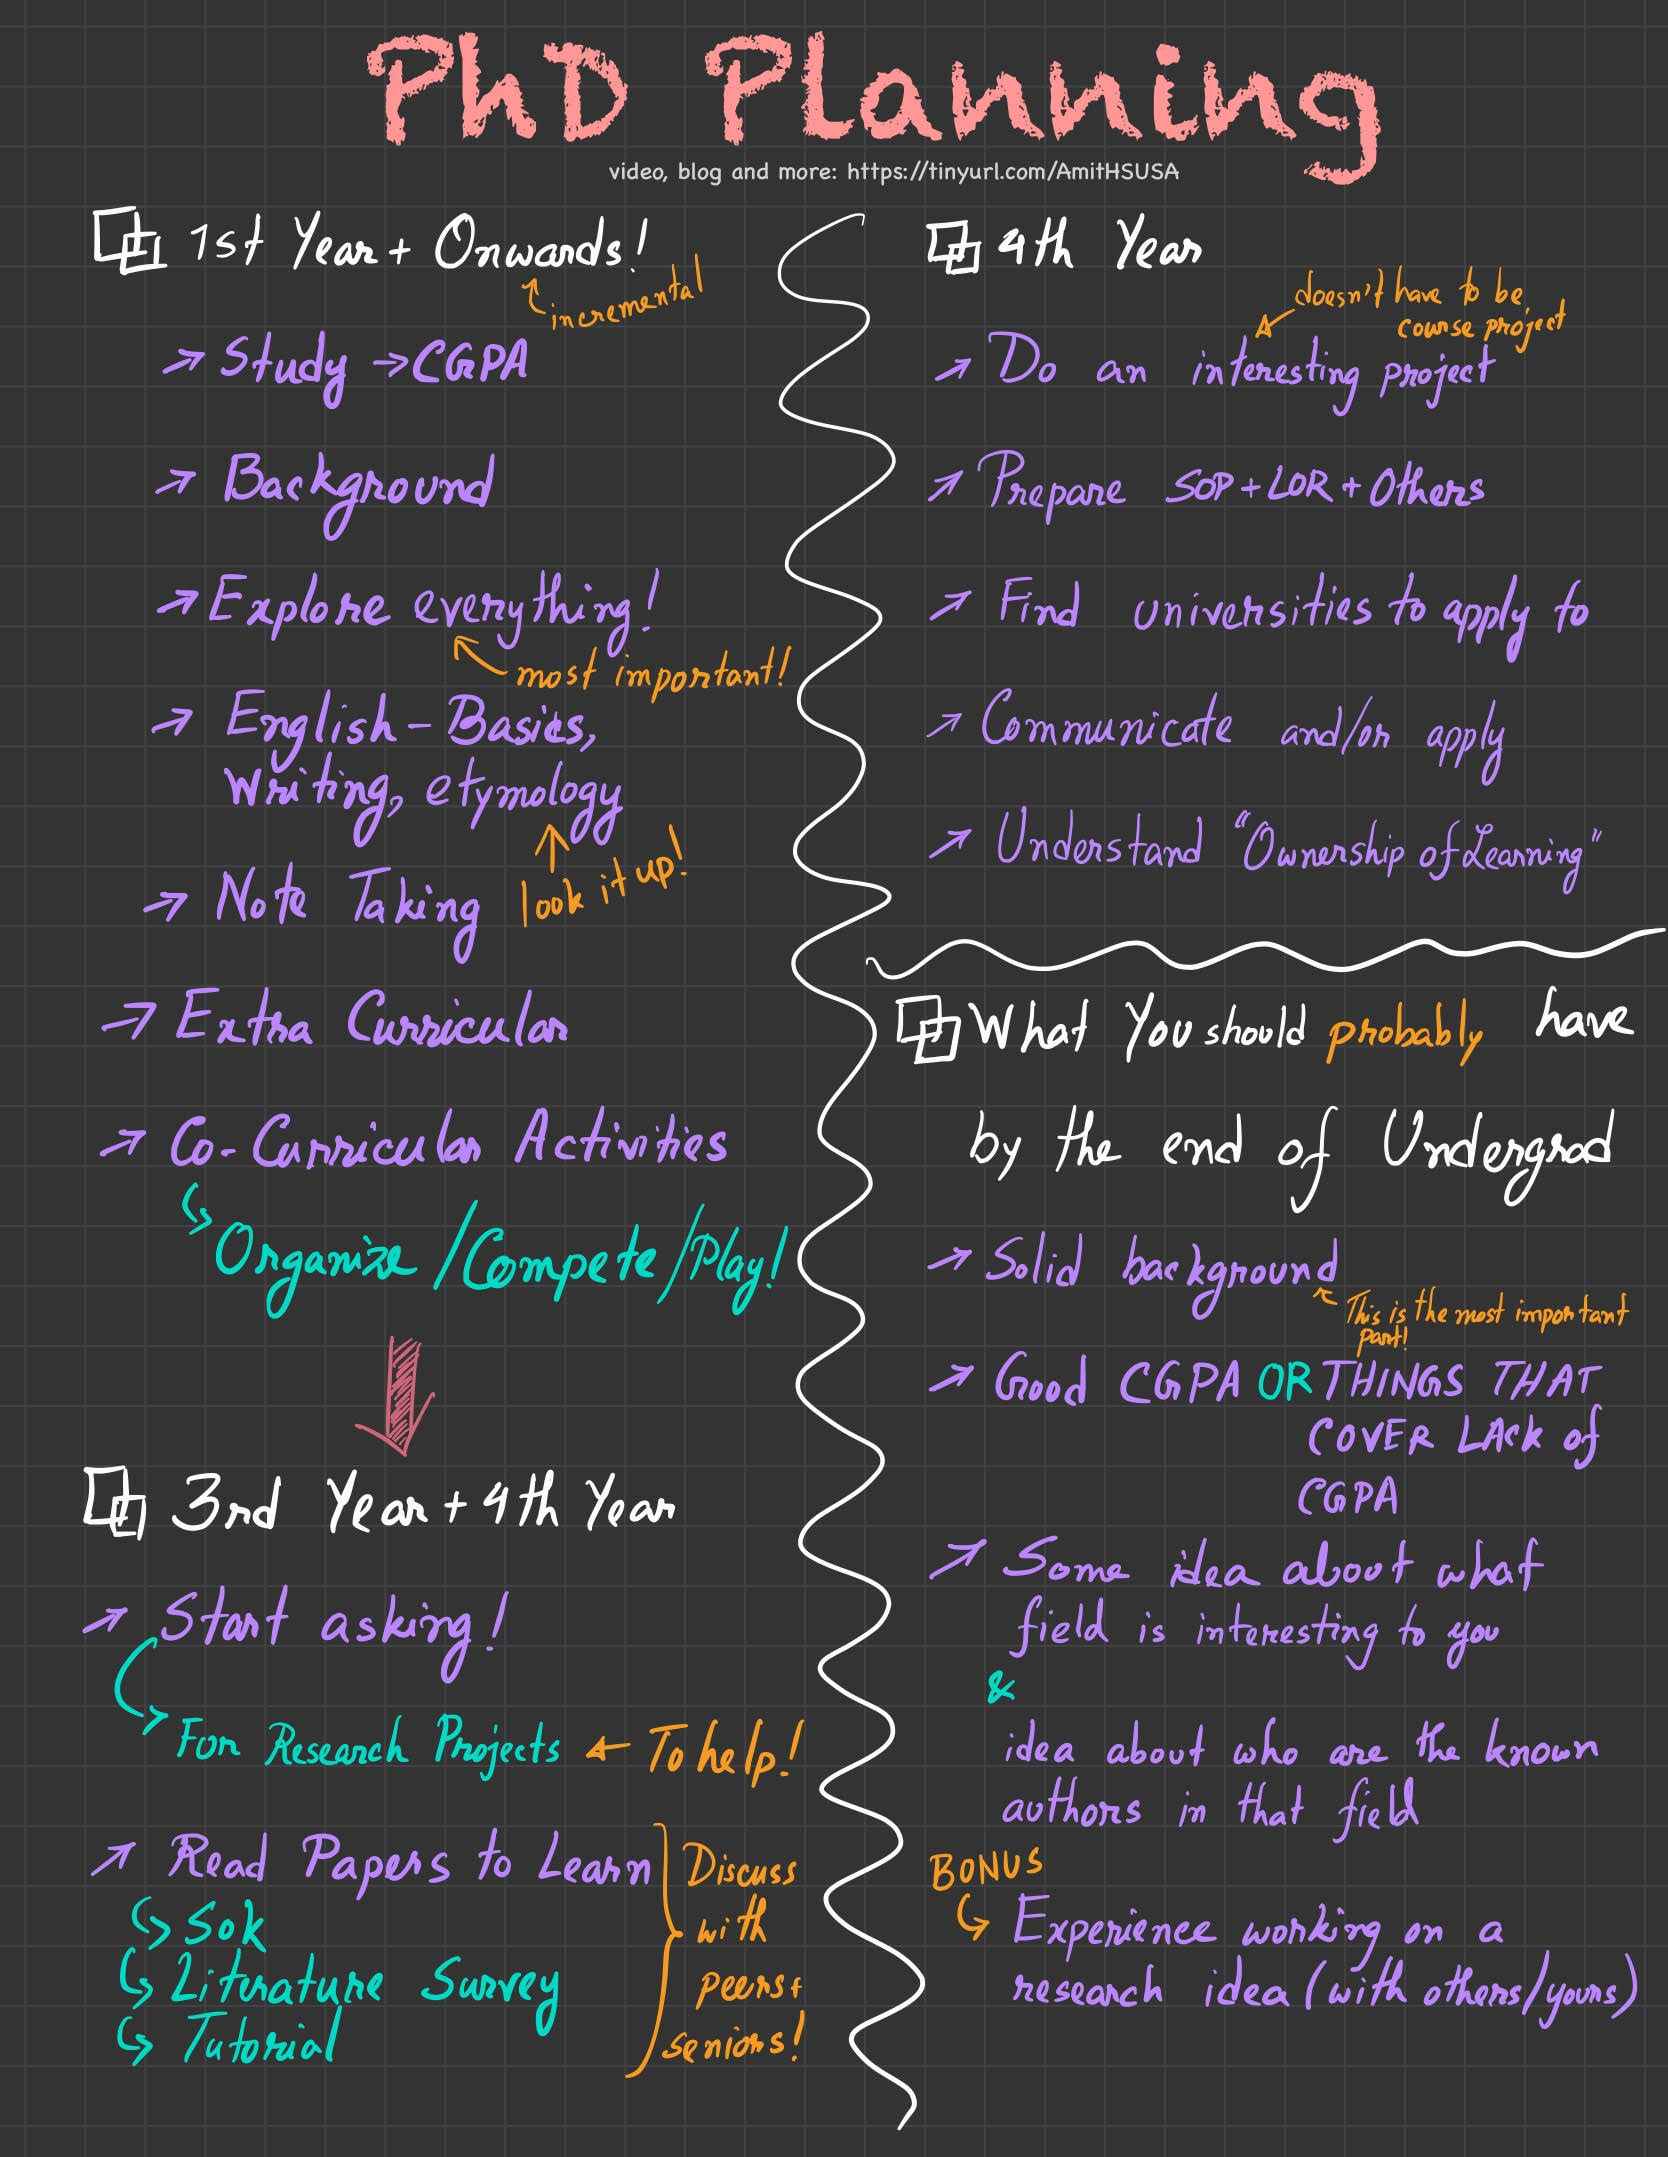 PhD Planning
video, blog and more: https://tinyurl.com/AmitHSUSA
1st Year + Onwards!
incremental
Study → CGPA
Background
Explore everything!
most important!
English - Basics,
Writing, etymology
look it up!
Note Taking
Extra Curricular
Co-Curricular Activities
Organize / Compete / Play!
3rd Year + 4th Year
Start asking!
For Research Projects ← To help!
Read Papers to Learn
Sok
Literature Survey
Tutorial
Discuss
with
peers +
seniors!
4th Year
doesn't have to be
course project
Do an interesting project
Prepare SOP + LOR + Others
Find universities to apply to
Communicate and/or apply
Understand "Ownership of Learning"
What You should probably have
by the end of Undergrad
Solid background
This is the most important
part!
Good CGPA OR THINGS THAT
COVER LACK of
CGPA
Some idea about what
field is interesting to you
&
idea about who are the known
authors in that field
BONUS
Experience working on a
research idea (with others/yours)